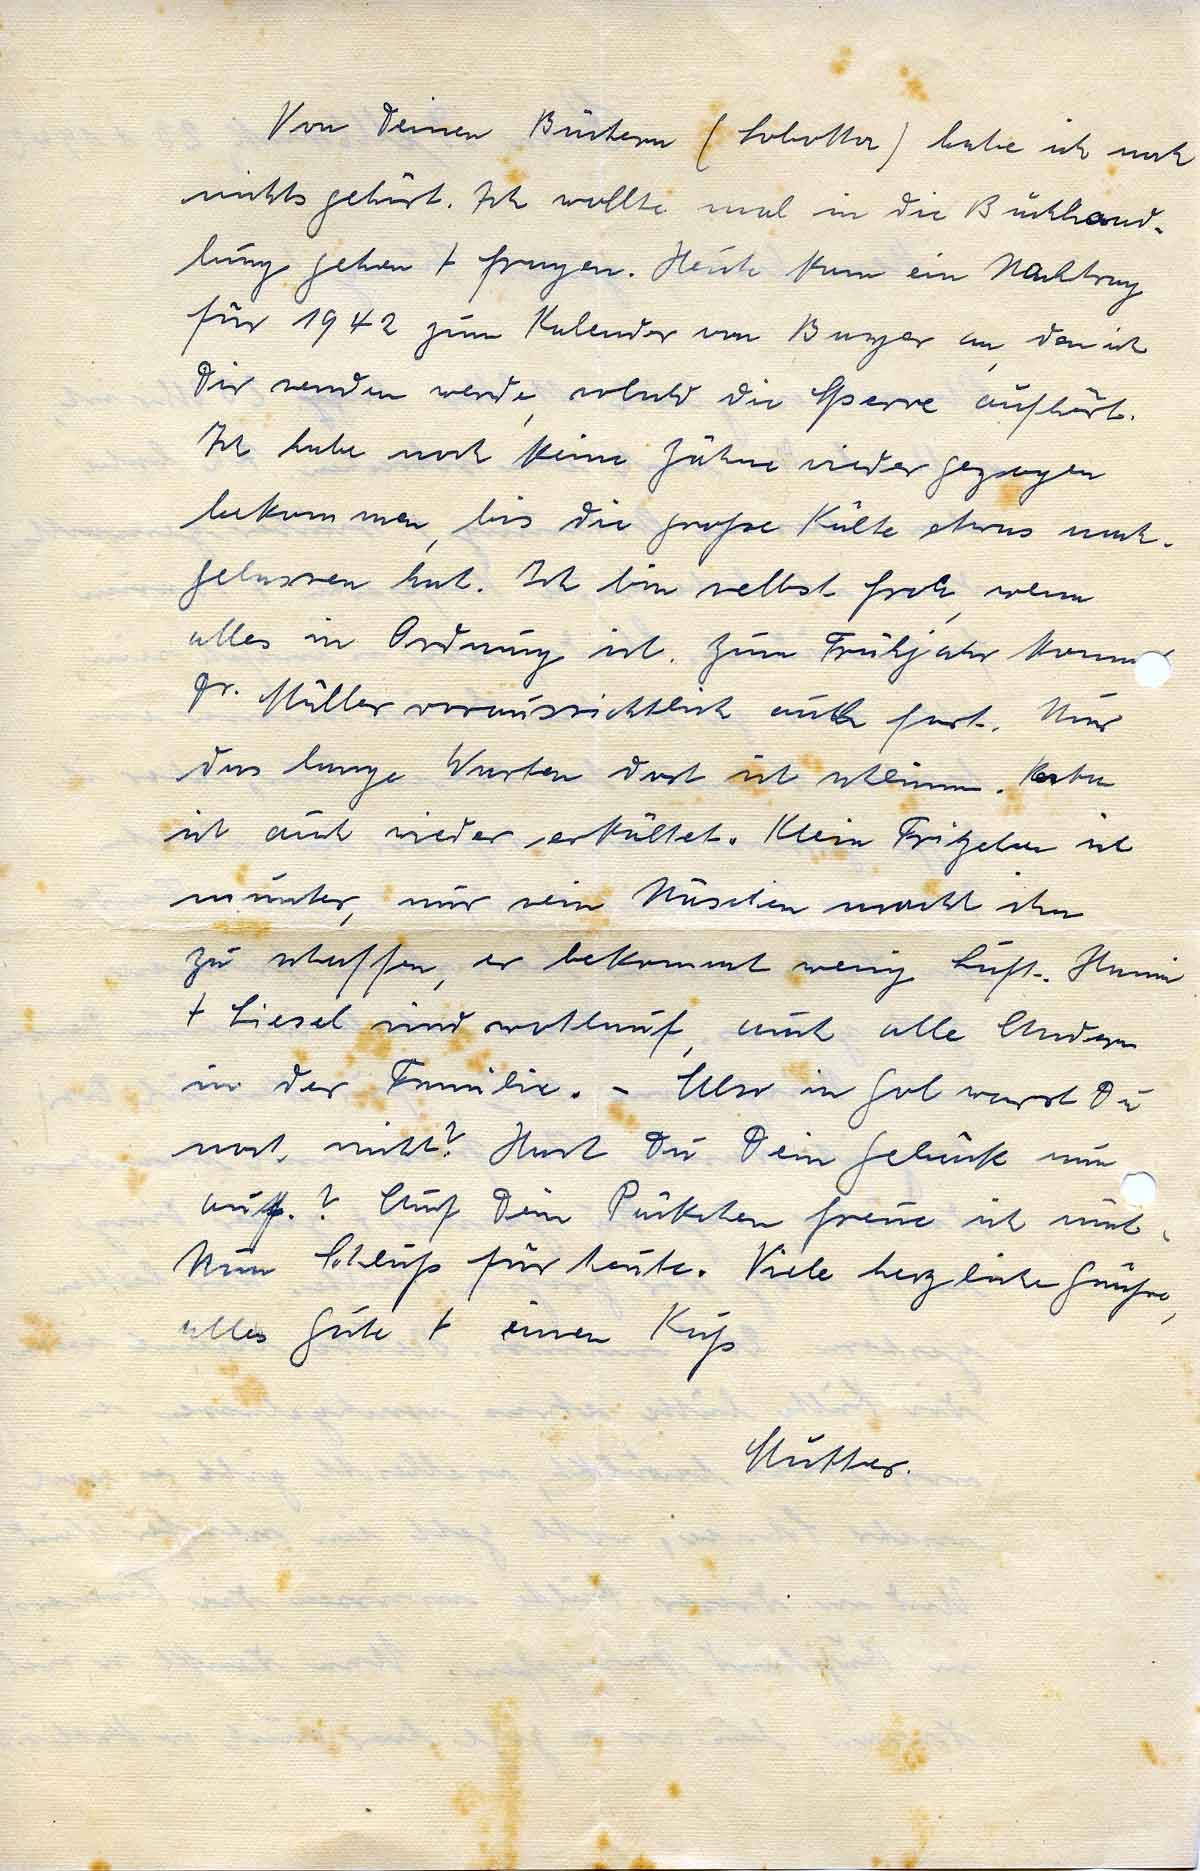 Von Deinen Büchern (Sobotta) habe ich noch
nichts gehört. Ich wollte mal in die Buchhand-
lung gehen + fragen. Heute kam ein Nachtrag
für 1942 zum Kalender von Bayer an, den ich
Dir senden werde, sobald die Sperre aufhört.
Ich habe noch keine Zähne wieder gezogen
bekommen, bis die große Kälte etwas nach-
gelassen hat. Ich bin selbst froh, wenn
alles in Ordnung ist. Zum Frühjahr kommt
Dr. Müller voraussichtlich auch fort. Nur
das lange Warten dort ist schlimm.
ist auch wieder erkältet. Klein Fritzchen ist
munter, nur sein Näschen macht ihm
zu schaffen, er bekommt wenig Luft.
+ Liesel sind wohlauf, auch alle Andern
in der Familie. - Also in Gol warst Du
noch nicht? Hast Du Dein Gepäck nun
? Auf Dein Päckchen freue ich mich.
Nun Schluß für heute. Viele herzliche Grüße,
alles Gute + einen Kuß
Mutter.